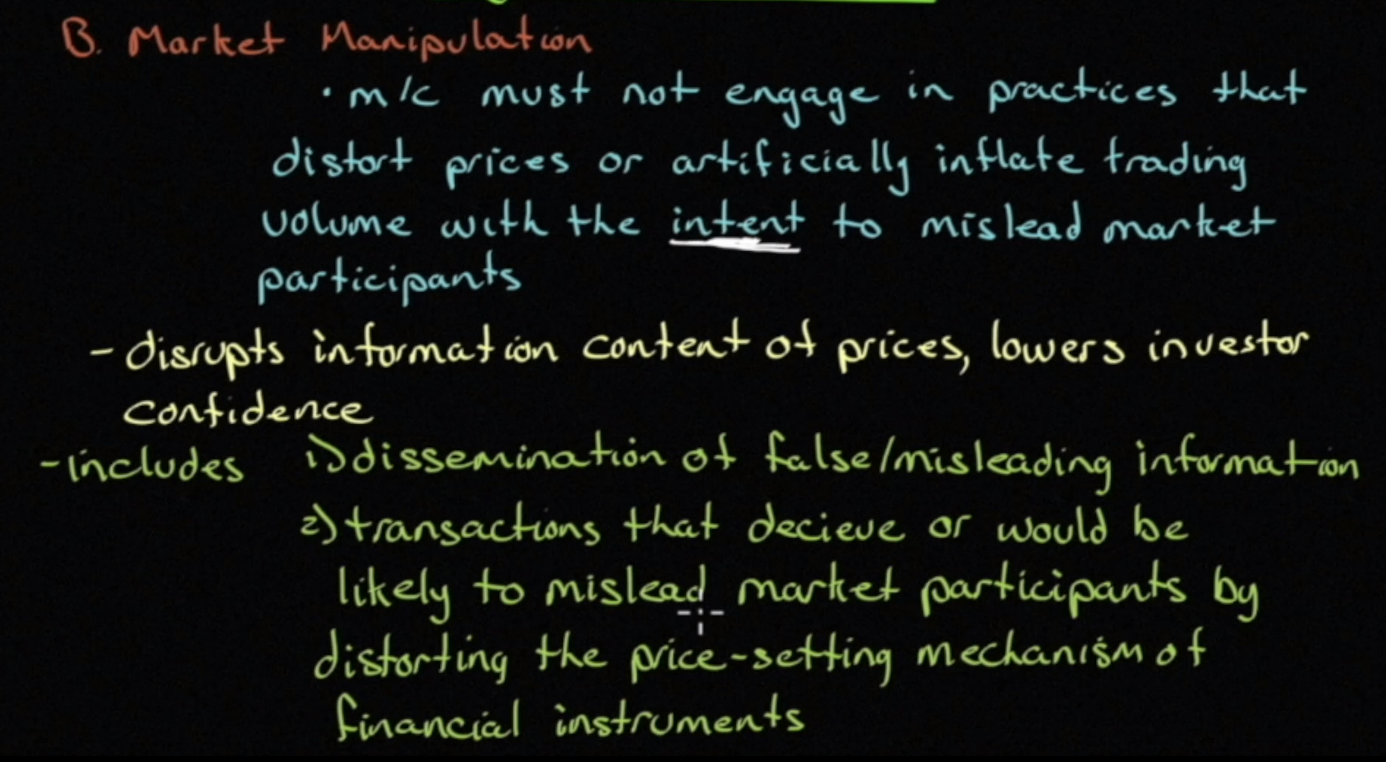 B. Market Manipulation
• m/c must not engage in practices that
distort prices or artificially inflate trading
volume with the intent to mislead market
participants
- disrupts information content of prices, lowers investor
confidence
- includes 1) dissemination of false/misleading information
2) transactions that decieve or would be
likely to mislead market participants by
distorting the price-setting mechanism of
financial instruments